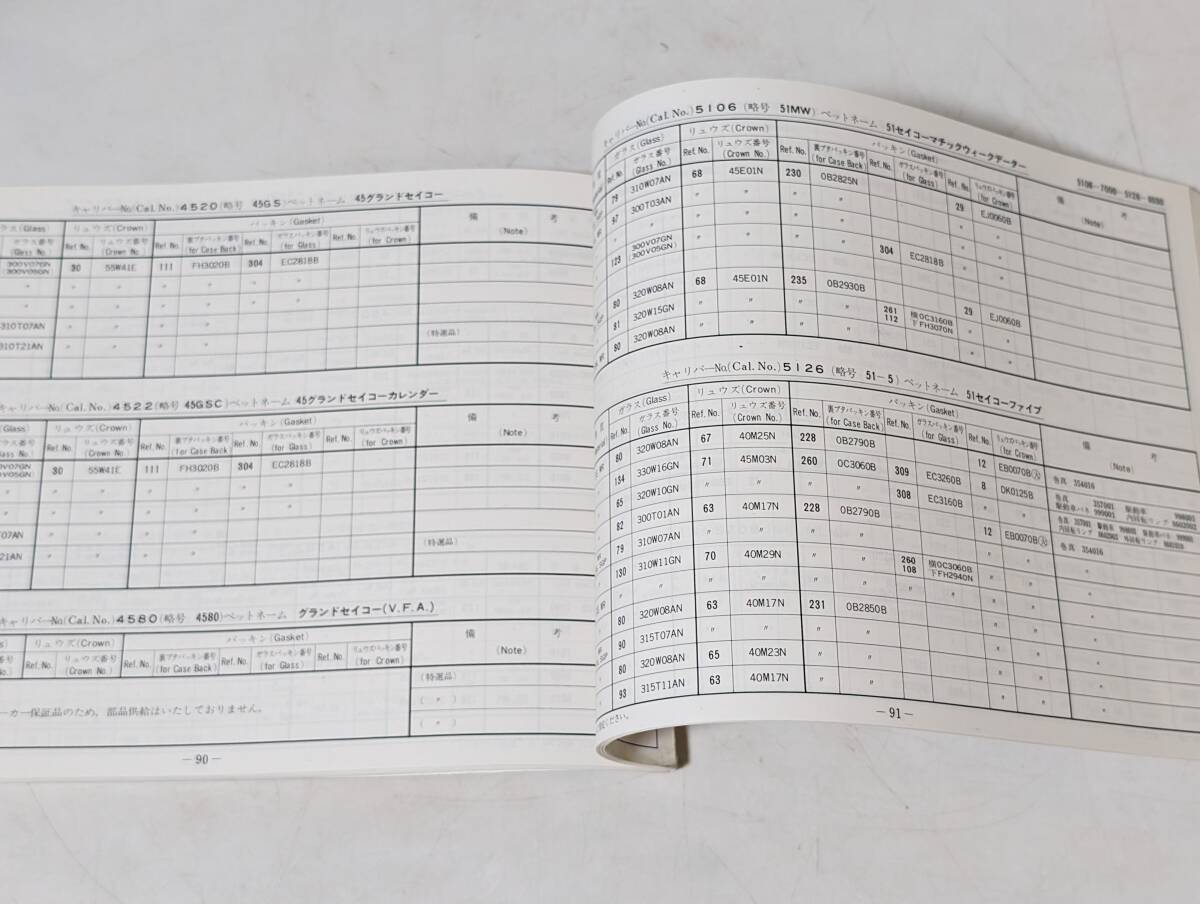 キャリバーNo.(Cal. No.) 4520 (略号 45GS) ペットネーム 45グランドセイコー
ラス(Glass) リュウズ(Crown) パッキン(Gasket) 備 考
ラス番号 (Glass No.) Ref. No. リュウズ番号 (Crown No.) Ref. No. 裏ブタパッキン番号 (for Case Back) Ref. No. ガラスパッキン番号 (for Glass) Ref. No. リュウズパッキン番号 (for Crown) (Note)
300V07GN (300V05GN) 30 55W41E 111 FH3020B 304 EC2818B
〃 〃 〃 〃 〃 〃 〃
〃 〃 〃 〃 〃 〃 〃
310T07AN 〃 〃 〃 〃 (特選品)
310T21AN 〃 〃 〃 〃
キャリバーNo.(Cal. No.) 4522 (略号 45GSC) ペットネーム 45グランドセイコーカレンダー
(Glass) リュウズ(Crown) パッキン(Gasket) 備 考
ラス番号 Glass No.) Ref. No. リュウズ番号 (Crown No.) Ref. No. 裏ブタパッキン番号 (for Case Back) Ref. No. ガラスパッキン番号 (for Glass) Ref. No. リュウズパッキン番号 (for Crown) (Note)
V07GN V05GN) 30 55W41E 111 FH3020B 304 EC2818B
〃 〃 〃 〃 〃 〃 〃
〃 〃 〃 〃 〃 〃 〃
T07AN 〃 〃 〃 〃 (特選品)
21AN 〃 〃 〃 〃
キャリバーNo.(Cal. No.) 4580 (略号 4580) ペットネーム グランドセイコー(V.F.A.)
s) リュウズ(Crown) パッキン(Gasket) 備 考
番号 No.) Ref. No. リュウズ番号 (Crown No.) Ref. No. 裏ブタパッキン番号 (for Case Back) Ref. No. ガラスパッキン番号 (for Glass) Ref. No. リュウズパッキン番号 (for Crown) (Note)
(特選品)
ーカー保証品のため、部品供給はいたしておりません。 ( 〃 )
( 〃 )
－90－
キャリバーNo.(Cal. No.) 5106 (略号 51MW) ペットネーム 51セイコーマチックウィークデーター
ガラス(Glass) リュウズ(Crown) パッキン(Gasket) 備 考
Ref. No. ガラス番号 (Glass No.) Ref. No. リュウズ番号 (Crown No.) Ref. No. 裏ブタパッキン番号 (for Case Back) Ref. No. ガラスパッキン番号 (for Glass) Ref. No. リュウズパッキン番号 (for Crown) (Note)
79 310W07AN 68 45E01N 230 0B2825N 29 EJ0060B
97 300T03AN 〃 〃 〃 〃 〃
〃 〃 〃 〃 〃 〃
123 300V07GN (300V05GN) 〃 〃 〃 304 EC2818B 〃 〃
80 320W08AN 68 45E01N 235 0B2930B 29 EJ0060B
81 320W15GN 〃 〃 〃 〃 261 112 横0C3160B 下FH3070N 〃
80 320W08AN 〃 〃 〃 〃
キャリバーNo.(Cal. No.) 5126 (略号 51-5) ペットネーム 51セイコーファイブ
ガラス(Glass) リュウズ(Crown) パッキン(Gasket) 備 考
Ref. No. ガラス番号 (Glass No.) Ref. No. リュウズ番号 (Crown No.) Ref. No. 裏ブタパッキン番号 (for Case Back) Ref. No. ガラスパッキン番号 (for Glass) Ref. No. リュウズパッキン番号 (for Crown) (Note)
80 320W08AN 67 40M25N 228 0B2790B 12 EB0070B 巻真 354016
134 330W16GN 71 45M03N 260 0C3060B 309 EC3260B 8 0K0125B
65 320W10GN 〃 〃 〃 〃 308 EC3160B 〃 〃
82 300T01AN 63 40M17N 228 0B2790B 12 EB0070B 巻真 354016
79 310W07AN 〃 〃 〃 〃 〃 〃
130 310W11GN 70 40M29N 〃 〃 260 108 横0C3060B 下FH2940N 〃 〃
〃 〃 〃 〃 〃 〃
80 320W08AN 63 40M17N 231 0B2850B 〃 〃
90 315T07AN 〃 〃 〃 〃 〃
80 320W08AN 65 40M23N 〃 〃 〃
93 315T11AN 63 40M17N 〃 〃 〃
ください。
－91－